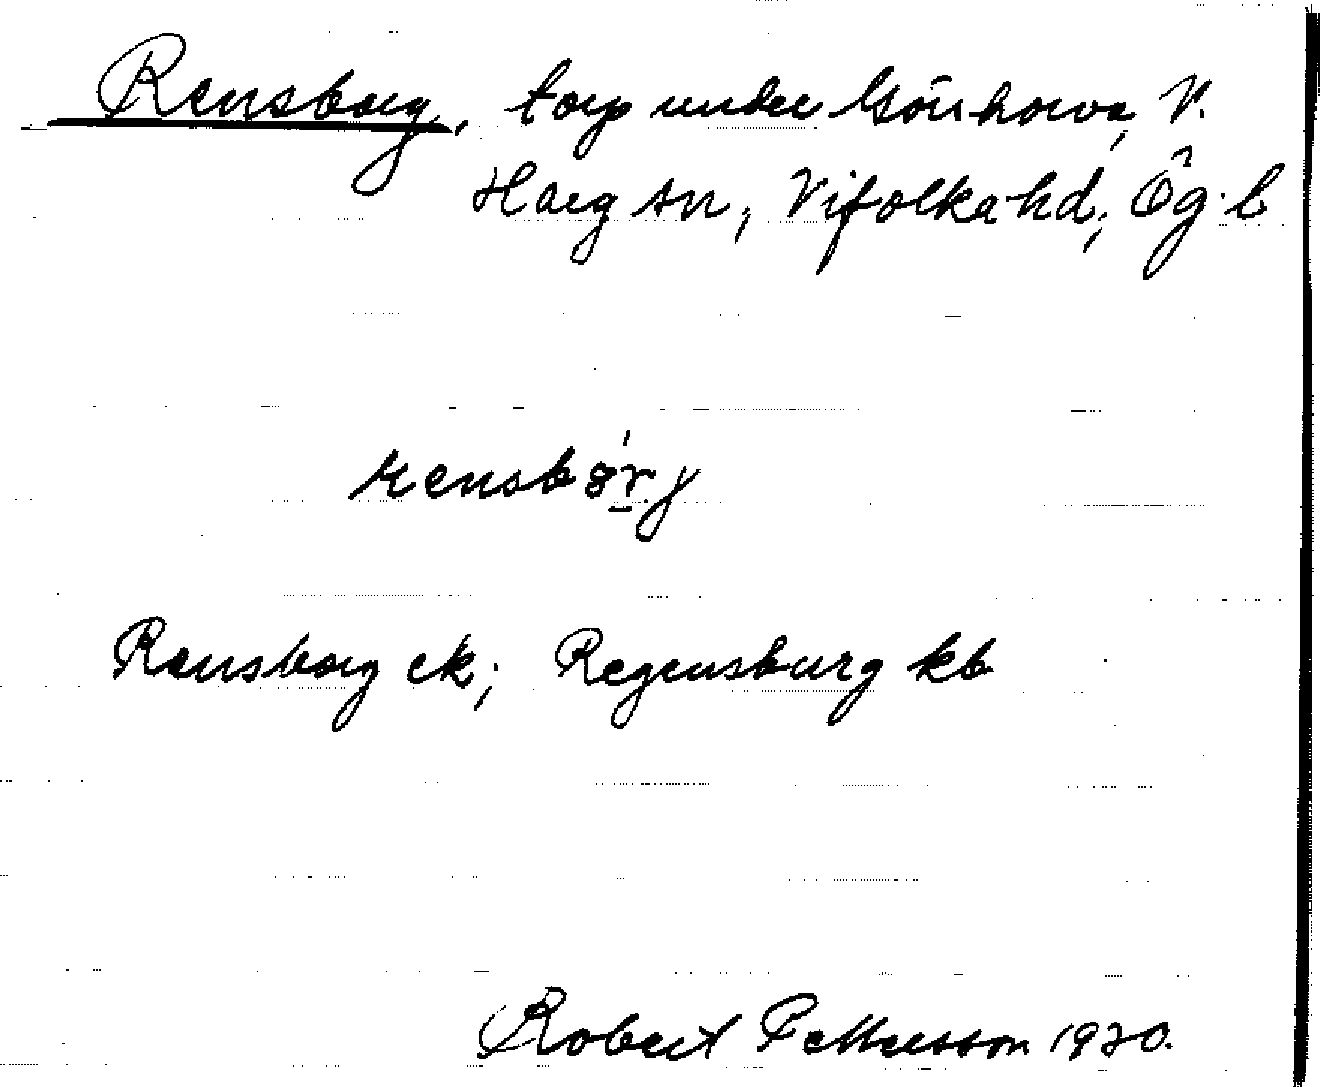 Rensborg, torp under Görshorva, V.
Harg sn, Vifolka hd, Ög. l.
rensbørj
Rensborg ek; Regensburg kb
Robert Pettersson 1920.